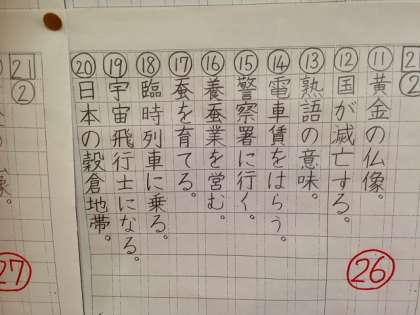 21
②
⑪黄金の仏像。
⑫国が滅亡する。
⑬熟語の意味。
⑭電車賃をはらう。
⑮警察署に行く。
⑯養蚕業を営む。
⑰蚕を育てる。
⑱臨時列車に乗る。
⑲宇宙飛行士になる。
⑳日本の穀倉地帯。
26
21
②
27